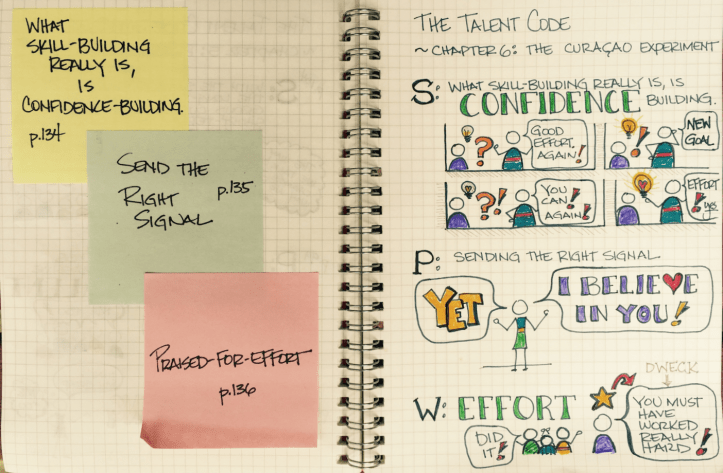 WHAT
SKILL-BUILDING
REALLY IS,
IS
CONFIDENCE-BUILDING.
p.134
SEND THE
RIGHT p.135
SIGNAL
PRAISED-FOR-EFFORT
p.136
THE TALENT CODE
~CHAPTER 6: THE CURAÇAO EXPERIMENT
S: WHAT SKILL-BUILDING REALLY IS, IS
CONFIDENCE BUILDING.
?
GOOD
EFFORT,
AGAIN!
!
NEW
GOAL
?!
YOU
CAN!
AGAIN!
!
EFFORT
! yes
P: SENDING THE RIGHT SIGNAL
YET
I BELIEVE
IN YOU!
DWECK
W: EFFORT
DID
IT!
YOU MUST
HAVE
WORKED
REALLY
HARD!